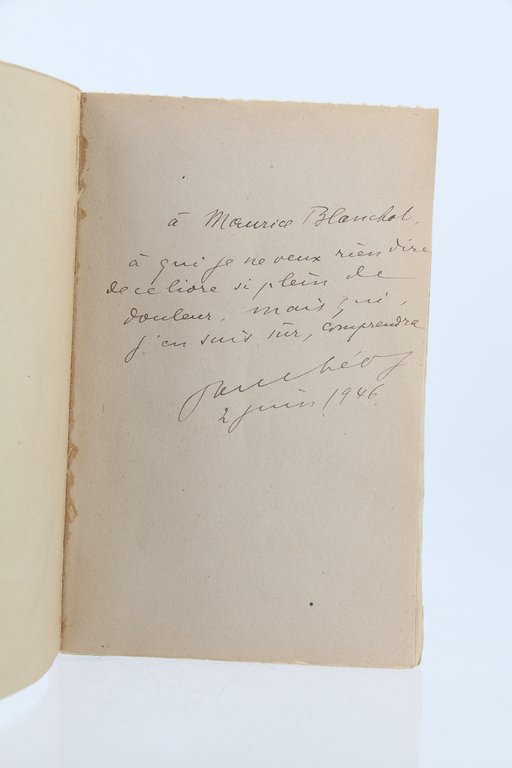 à Maurice Blanchot,
à qui je ne veux rien dire
de ce livre si plein de
douleur, mais qui,
j'en suis sûr, comprendra
2 juin 1946.